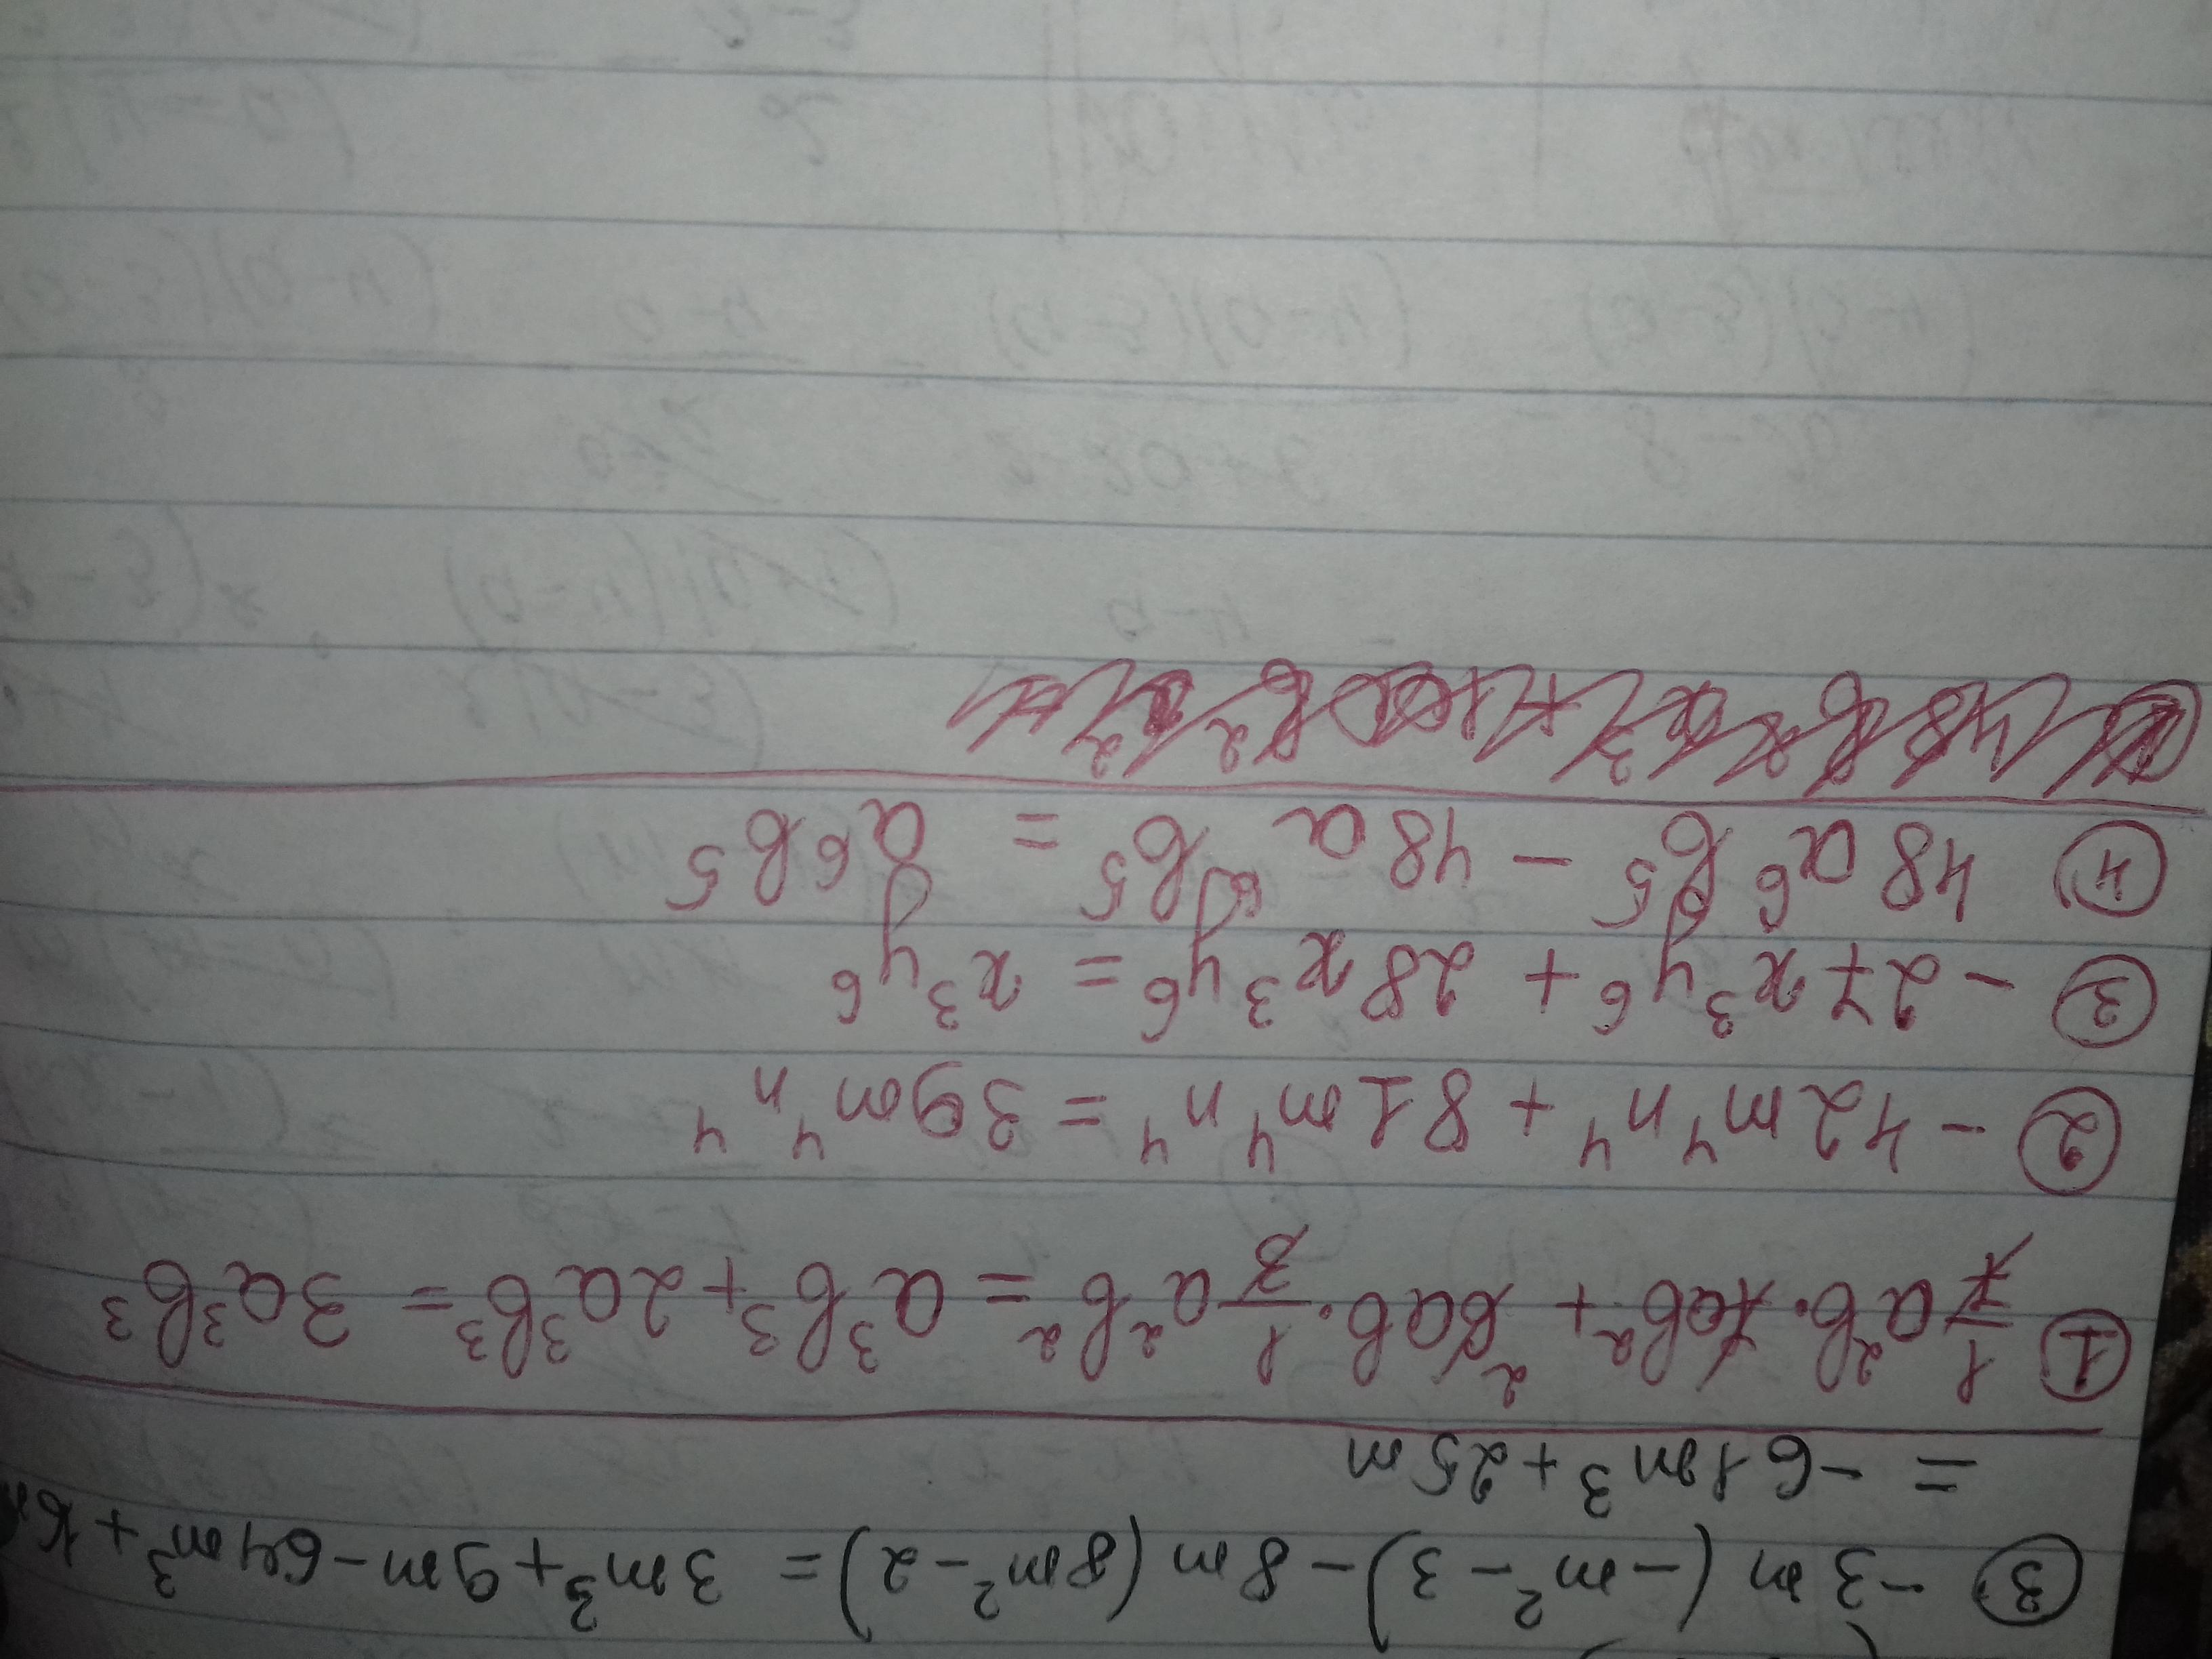 ③ -3m (-m² - 3) - 8m (8m² - 2) = 3m³ + 9m - 64m³ +
= -61m³ + 25m
① 1/7 a²b · 7ab² + 6ab · 1/3 a²b² = a³b³ + 2a³b³ = 3a³b³
② -42m⁴n⁴ + 81m⁴n⁴ = 39m⁴n⁴
③ -27x³y⁶ + 28x³y⁶ = x³y⁶
④ 48a⁶b⁵ - 48a⁶b⁵ = a⁶b⁵